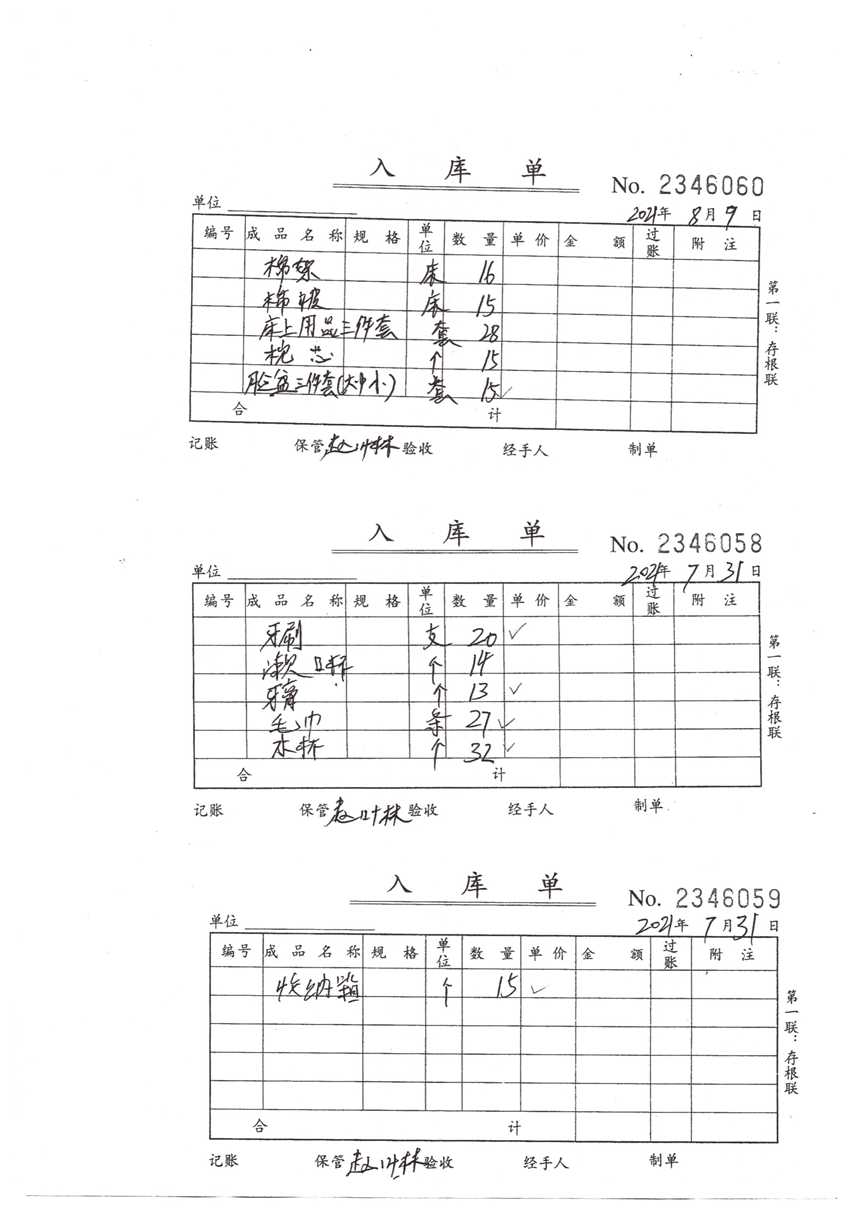 入 库 单
No. 2346060
单位
2021年 8月 9日
编号 成品名称 规格 单位 数量 单价 金额 过账 附注
棉絮 床 16
棉被 床 15
床上用品三件套 套 28
枕芯 个 15
脸盆三件套(大中小) 套 15 ✓
合 计
第一联：存根联
记账 保管 赵叶林 验收 经手人 制单
入 库 单
No. 2346058
单位
2021年 7月 31日
编号 成品名称 规格 单位 数量 单价 金额 过账 附注
牙刷 支 20 ✓
漱口杯 个 14
牙膏 个 13 ✓
毛巾 条 27 ✓
水杯 个 32 ✓
合 计
第一联：存根联
记账 保管 赵叶林 验收 经手人 制单
入 库 单
No. 2346059
单位
2021年 7月 31日
编号 成品名称 规格 单位 数量 单价 金额 过账 附注
收纳箱 个 15 ✓
合 计
第一联：存根联
记账 保管 赵叶林 验收 经手人 制单